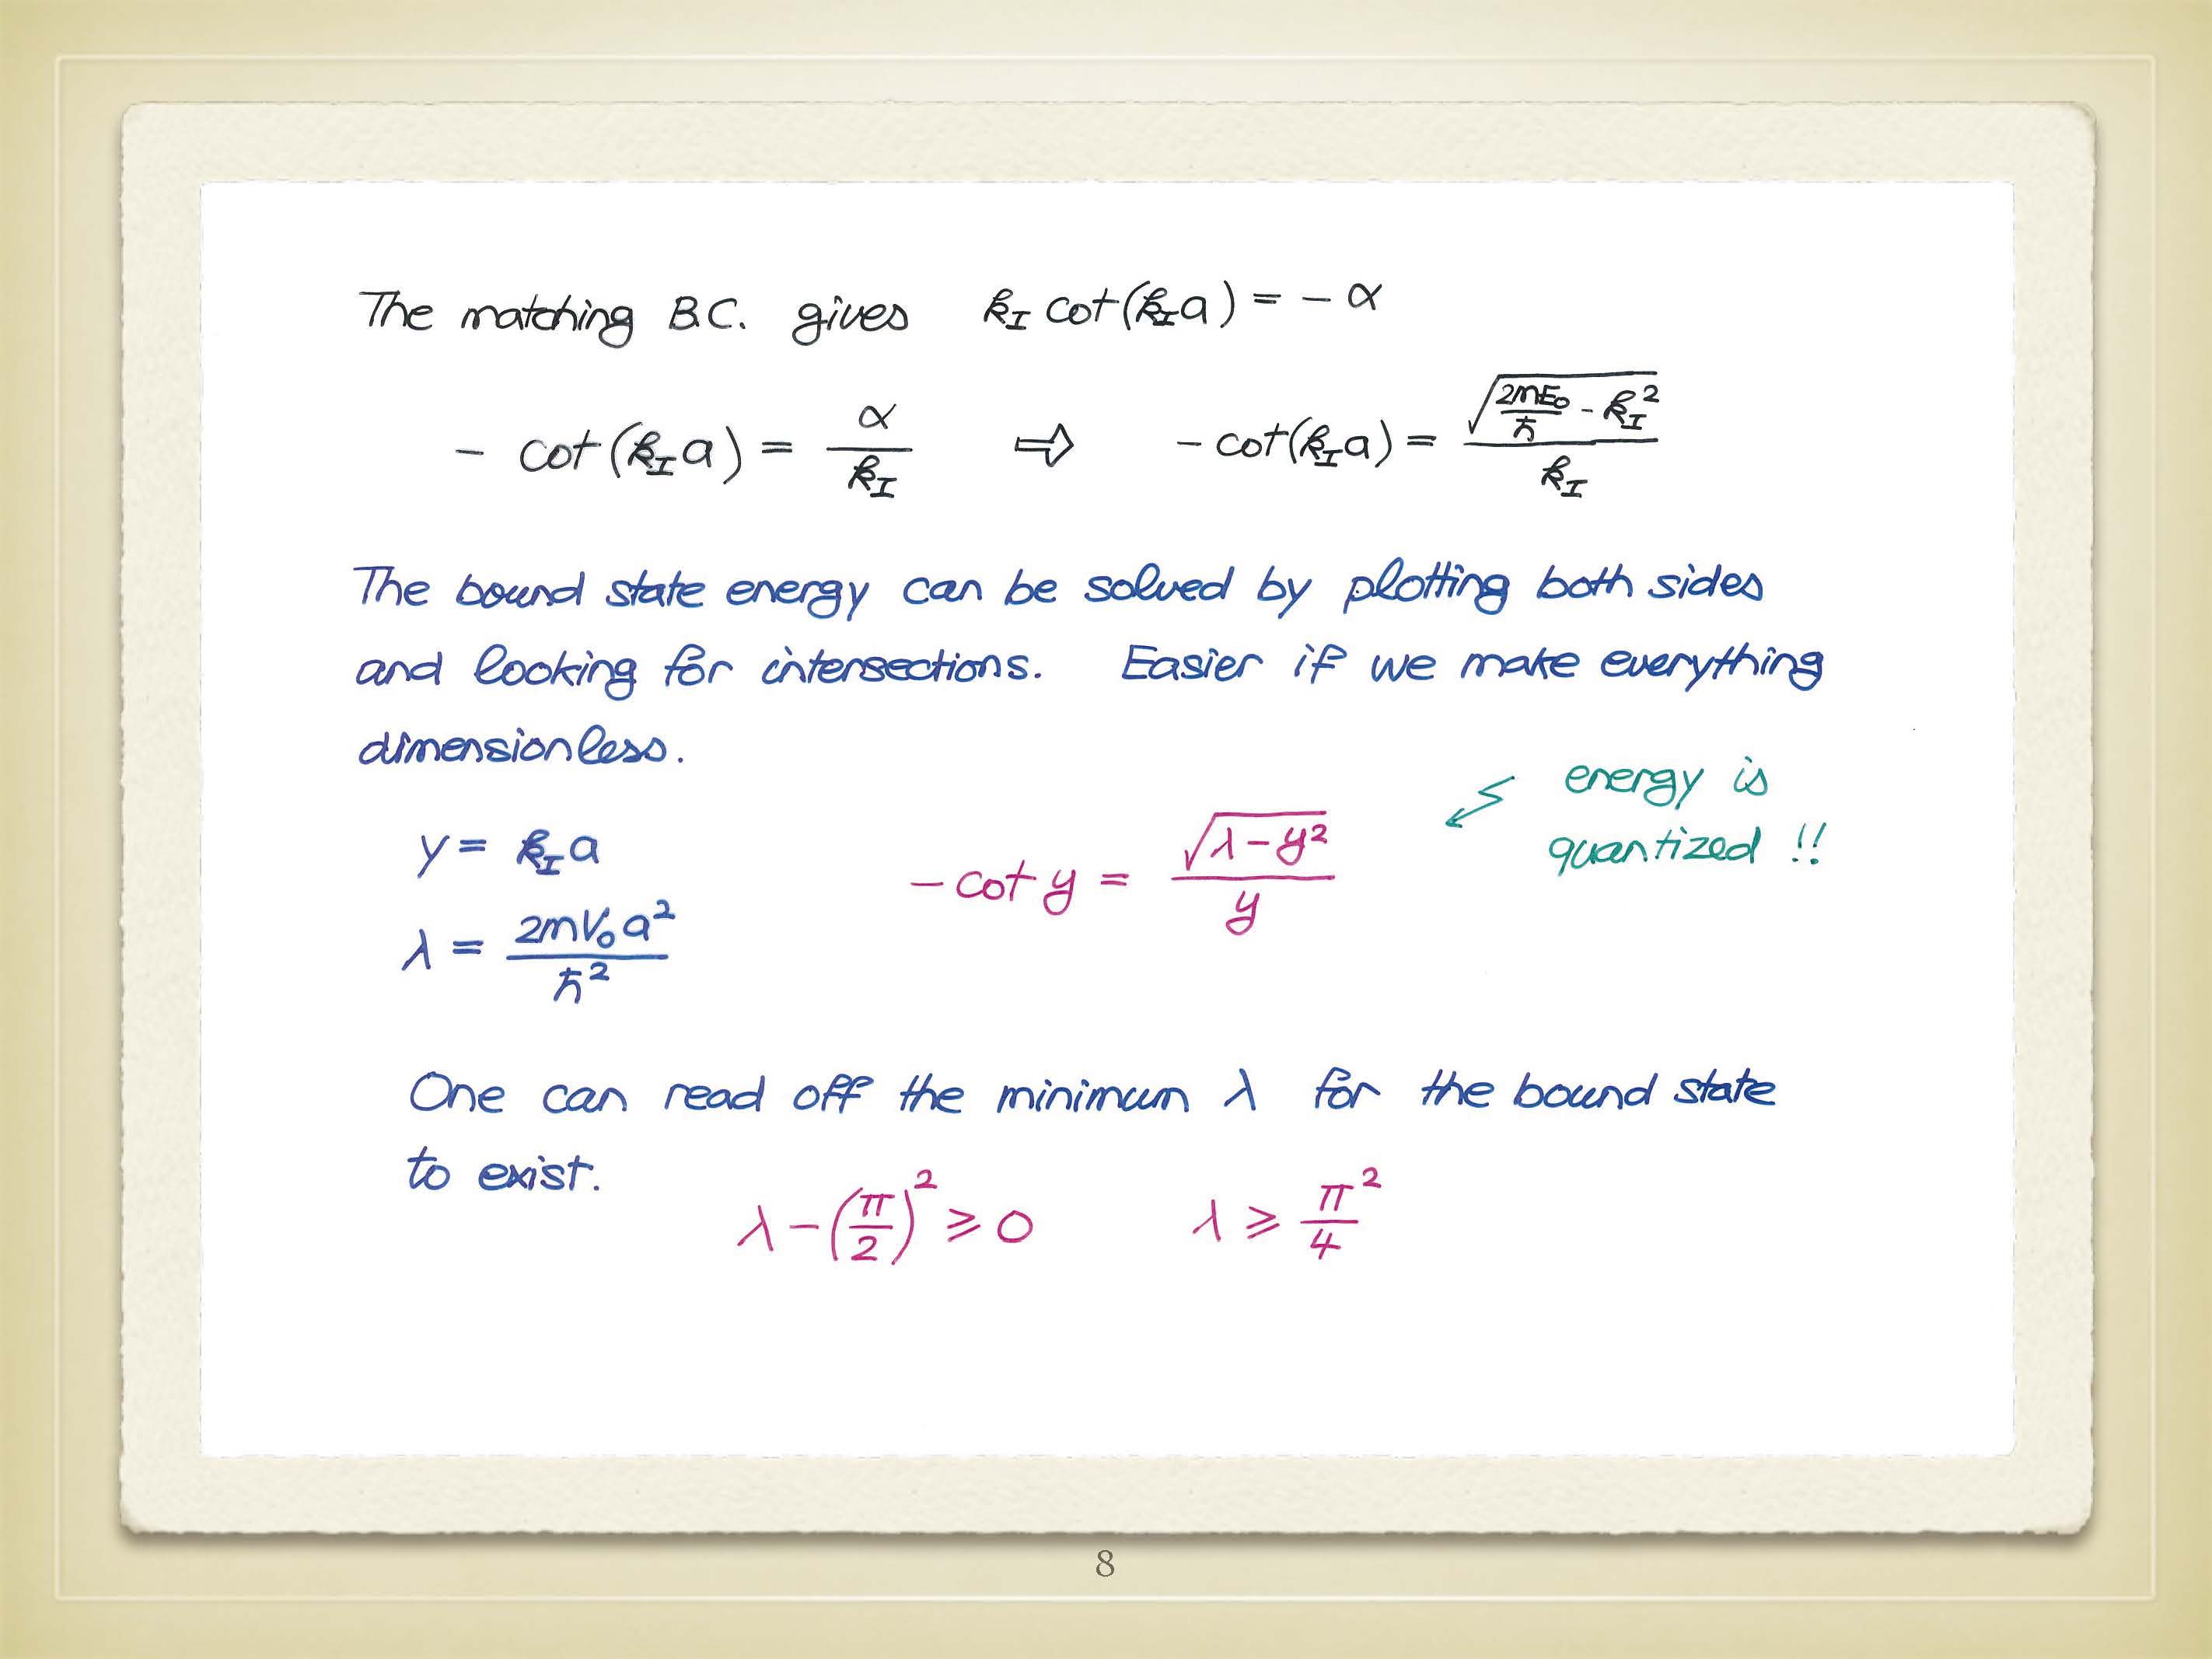 The matching B.C. gives k_I cot(k_I a) = - α
- cot(k_I a) = α / k_I ⇨ - cot(k_I a) = √(2mE₀/ħ - k_I²) / k_I
The bound state energy can be solved by plotting both sides
and looking for intersections. Easier if we make everything
dimensionless.
energy is
quantized !!
y = k_I a
- cot y = √(λ - y²) / y
λ = 2mV₀a² / ħ²
One can read off the minimum λ for the bound state
to exist.
λ - (π/2)² ⩾ 0 λ ⩾ π²/4
8